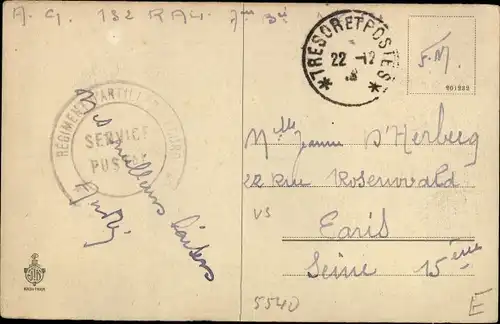 A. G. 132 RAL. 7me Bie
TRESOR ET POSTES
22 -12
F. M.
901222
REGIMENT D'ARTILLERIE LOURDE
SERVICE
POSTAL
Mes meilleurs baisers
Melle Jeanne D'Herberg
22 Rue Rosenwald
VS
Earis
Seine 15ème
5540
E